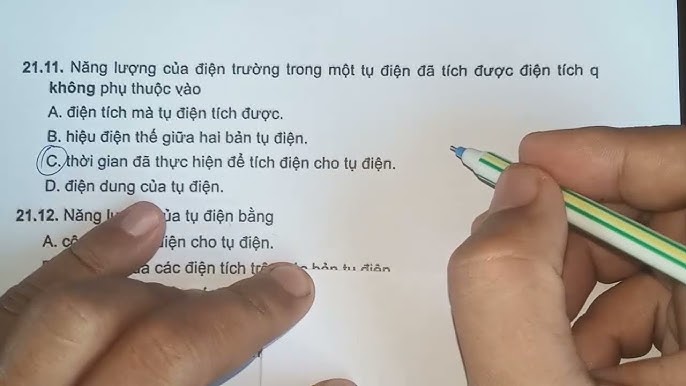 21.11. Năng lượng của điện trường trong một tụ điện đã tích được điện tích q
không phụ thuộc vào
A. điện tích mà tụ điện tích được.
B. hiệu điện thế giữa hai bản tụ điện.
C. thời gian đã thực hiện để tích điện cho tụ điện.
D. điện dung của tụ điện.
21.12. Năng của tụ điện bằng
A. điện cho tụ điện.
các điện tích bản tụ điện